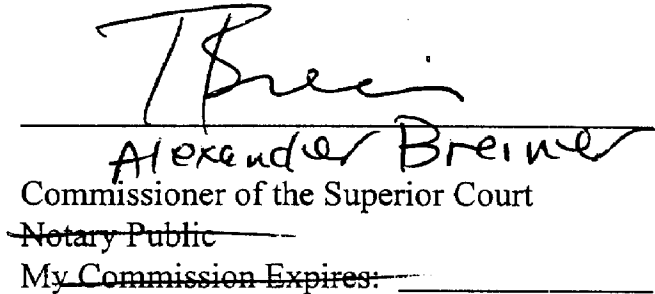 Alexander Breiner
Commissioner of the Superior Court
Notary Public
My Commission Expires: